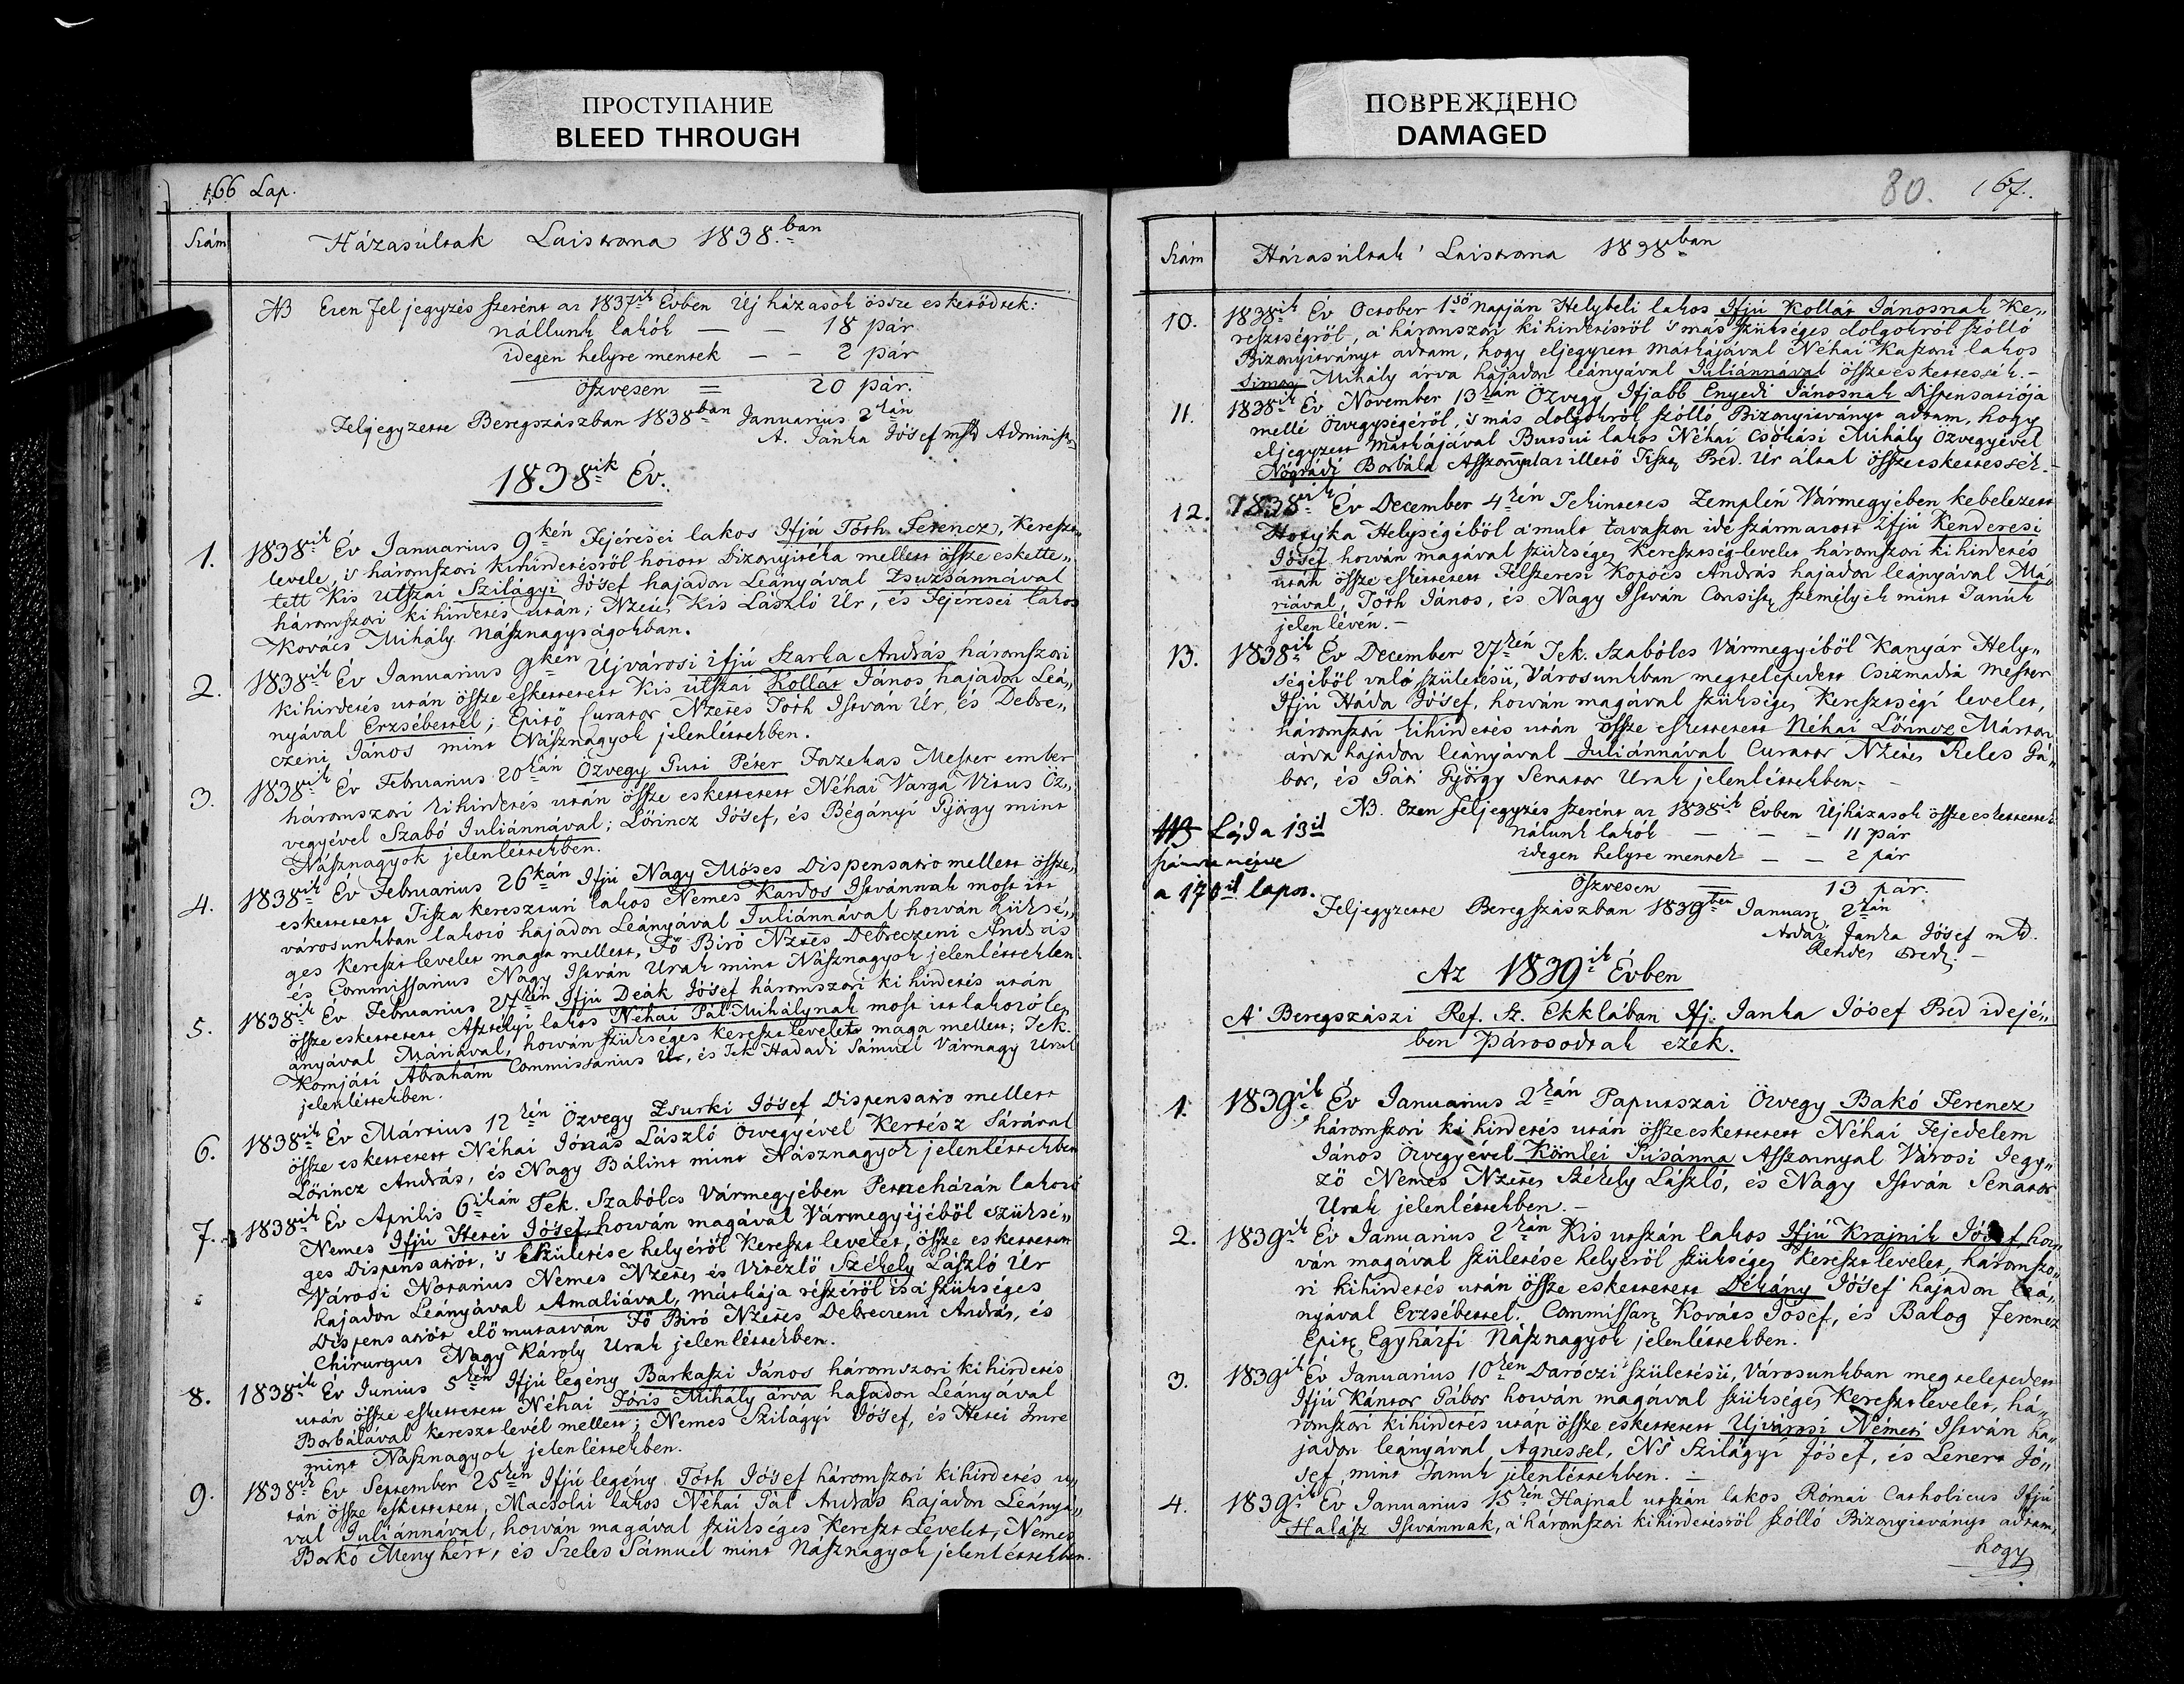 ПРОСТУПАНИЕ
BLEED THROUGH
ПОВРЕЖДЕНО
DAMAGED
166 Lap.
Szám
Házasúltak Laistroma 1838.ban
NB Ezen fel jegyzés szerént az 1837ik Évben Új házasok össze eskettettek:
nállunk lakók — — 18 pár
idegen helyre mentek — — 2 pár
öszvesen = 20 pár.
Feljegyzette Beregszászban 1838ban Januarius 2kán
A. Janka Jósef mpd Administr
1838ik Év.
1. 1838ik Év Januarius 9kén Fejércsei lakos Ifjú Tóth Ferencz, Kereszt
levele, 's háromszori kihirdetésröl hozott Bizonyitéka mellett össze eskette„
tett Kis Utszai Szilágyi Jósef hajadon Leányával Zsuzsánnával
háromszori ki hirdetés után; Nzetes Kis László Úr, és Fejércsei lakos
Kovács Mihály Násznagyságokban.
2. 1838ik Év Januarius 9kén Újvárosi ifjú Szarka András háromszori
kihirdetés után össze eskettetett Kis útszai Kollat János hajadon Leá„
nyával Erzsébettel; Épitő Curator Nzetes Tóth István Úr, és Debre„
czeni János mint Násznagyok jelenlétekben.
3. 1838ik Év Februarius 20kán Özvegy Guti Péter Fazekas Mester ember
háromszori kihirdetés után össze eskettetett Néhai Varga Vitus Öz„
vegyével Szabó Juliánnával; Lőrincz Jósef, és Bégányi György mint
Násznagyok jelenlétekben.
4. 1838ik Év Februarius 26kán Ifjú Nagy Móses Dispensatio mellett össze„
eskettetett Tisza keresztúri lakos Nemes Kardos Istvánnak most itt
városunkban lakozó hajadon Leányával Juliánnával hozván szüksé„
ges Kereszt levelet maga mellett, Fő Biró Nzetes Debreczeni András
és Commissarius Nagy István Urak mint Násznagyok jelenlétekben
5. 1838ik Év Februarius 27kén Ifjú Deák Jósef háromszori ki hirdetés után
össze eskettetett Asztelyi lakos Néhai Pál Mihálynak most itt lakozó le„
ányával Máriával, hozván szükséges kereszt levelet maga mellett; Tek.
Komjáti Ábrahám Commissarius Úr, és Tek Hadadi Sámuel Várnagy Urak
jelenlétekben.
6. 1838ik Év Mártius 12kén Özvegy Zsurki Jósef Dispensatio mellett
össze eskettetett Néhai Jónás László Özvegyével Kertész Sárával
Lőrincz András, és Nagy Bálint mint Násznagyok jelenlétekben
7. 1838ik Év Aprilis 6ikán Tek. Szabólcs Vármegyében Petneházán lakozó
Nemes Ifjú Itesei Jósef hozván magával Vármegyéjéböl szüksé„
ges Dispensatiót, 's születése helyéröl Kereszt levelet, össze eskettetett
Városi Notarius Nemes Nzetes és Vitézlő Székely László Úr
hajadon Leányával Amaliával, mátkája részéröl is a' szükséges
Dispensatiót elő mutatván Fő Biró Nzetes Debreczeni András, és
Chirurgus Nagy Károly Urak jelenlétekben.
8. 1838ik Év Junius 5kén Ifjú legény Barkaszi János háromszori ki hirdetés
után össze eskettetett Néhai Jóris Mihály árva hajadon Leányával
Borbálával kereszt levél mellett; Nemes Szilágyi Jósef, és Hetei Imre
mint Násznagyok jelenlétekben.
9. 1838ik Év September 25kén Ifjú legény Tóth Jósef háromszori kihirdetés u„
tán össze eskettetett, Macsolai lakos Néhai Pál András hajadon Leányá„
val Juliánnával, hozván magával szükséges Kereszt Levelet, Nemes
Borkó Menyhért, és Szeles Sámuel mint Násznagyok jelenlétekben.
80. 167.
Szám
Házasúltak Laistroma 1838ban
10. 1838ik Év October 1ső napján Helybeli lakos Ifjú Kollát Jánosnak Ke„
resztségröl, a' háromszori kihirdetésröl 's más szükséges dolgokról szólló
Bizonyitványt adtam, hogy eljegyzett Mátkájával Néhai Kaszoni lakos
Simon Mihály árva hajadon leányával Juliánnával össze eskettessék.-
11. 1838ik Év November 13kán Özvegy Ifjabb Enyedi Jánosnak Dispensatiója
mellé Özvegységéröl, 's más dolgokról szólló Bizonyitványt adtam, hogy
eljegyzett Mátkájával Butsui lakos Néhai Csókási Mihály Özvegyével
Nógrádi Borbála Asszonnyal az illető Tiszt. Préd. Úr által összeeskettessék.-
12. 1838ik Év December 4kén Tekintetes Zemplén Vármegyében kebelezett
Hotyka Helységéböl a' mult tavaszon ide származott Ifjú Kenderesi
Jósef hozván magával szükséges Keresztséglevelet háromszori kihirdetés
után össze eskettetett Felszeresi Kopócs András hajadon leányával Má„
riával, Tóth János, és Nagy István Consist. személyek mint Tanúk
jelen lévén.-
13. 1838ik Év December 27kén Tek. Szabólcs Vármegyéböl Kanyár Hely„
ségéböl való születésü, Városunkban megtelepedett Csizmadia Mester
Ifjú Háda Jósef, hozván magával szükséges Keresztségi levelet,
háromszori kihirdetés után össze eskettetett Néhai Lőrincz Márton
árva hajadon leányával Juliánnával Curator Nzetes Keles Gá„
bor, és Gáti György Senator Urak jelenlétekben.-
NB. Ezen feljegyzés szerént az 1838ik Évben Újházasok össze eskettettek
nálunk lakók — — — 11 pár
idegen helyre mentek — — 2 pár
öszvesen = 13 pár.
NB Láda 13ik
a 170ik lapon.
Feljegyzette Beregszászban 1839ben Januar. 2kán
Ardai Janka Jósef mk.
Rendes Préd. -
Az 1839ik Évben
A' Beregszászi Ref. Sz. Ekklában Ifj. Janka Jósef Pred idejé„
ben párosodtak ezek.
1. 1839ik Év Januarius 2kán Paputszai Özvegy Bakó Ferencz
háromszori ki hirdetés után össze eskettetett Néhai Fejedelem
János Özvegyével Könlei Susánna Asszonnyal Városi Jegy„
ző Nemes Nzetes Székely László, és Nagy István Senator
Urak jelenlétekben.-
2. 1839ik Év Januarius 2kán Kis utszán lakos Ifjú Krajnik Jósef, hoz
ván magával születése helyéröl szükséges Kereszt levelet, háromszo„
ri kihirdetés után össze eskettetett Dékány Jósef hajadon lea„
nyával Erzsébettel. Commissar. Kovács Jósef, és Balog Ferencz
Épit. Egyházfi Násznagyok jelenlétekben.
3. 1839ik Év Januárius 10kén Daróczi születésü, Városunkban megtelepedett
Ifjú Kántor Gábor hozván magával szükséges Keresztlevelet, há„
romszori kihirdetés után össze eskettetett Újvárosi Németi István ha„
jadon leányával Agnessel, NS Szilágyi Jósef, és Lenert Jó„
sef, mint Tanuk jelenlétekben.-
4. 1839ik Év Januarius 15kén Hajnal utszán lakos Római Catholicus Ifjú
Halász Istvánnak, a' háromszori kihirdetésröl szólló Bizonyitványt adtam,
hogy